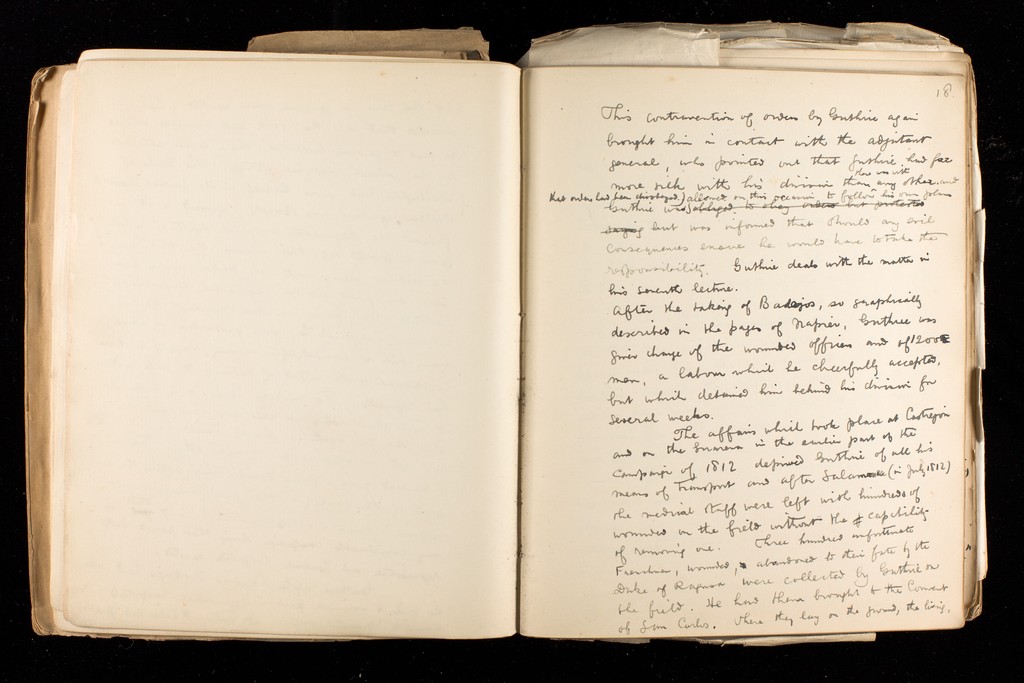 18.
This contravention of orders by Guthrie again
brought him in contact with the adjutant
general, who pointed out that Guthrie had far
more sick with his division than any other and
there was with
that orders had been disobeyed.) allowed on this occasion to follow his own plans
Guthrie was obliged to obey orders but protested
saying but was informed that should any evil
consequences ensue he would have to take the
responsibility. Guthrie deals with the matter in
his seventh lecture.
After the taking of Badajos, so graphically
described in the pages of Napier, Guthrie was
given charge of the wounded officers and of 1200
men, a labour which he cheerfully accepted,
but which detained him behind his division for
several weeks.
The affairs which took place at Castrejon
and on the Guarena in the earlier part of the
campaign of 1812 deprived Guthrie of all his
means of transport and after Salamanca (in July 1812)
the medical staff were left with hundreds of
wounded on the field without the capability
of removing one. Three hundred unfortunate
Frenchmen, wounded, abandoned to their fate by the
Duke of Ragusa were collected by Guthrie on
the field. He had them brought to the Convent
of San Carlos. Where they lay on the ground, the living,